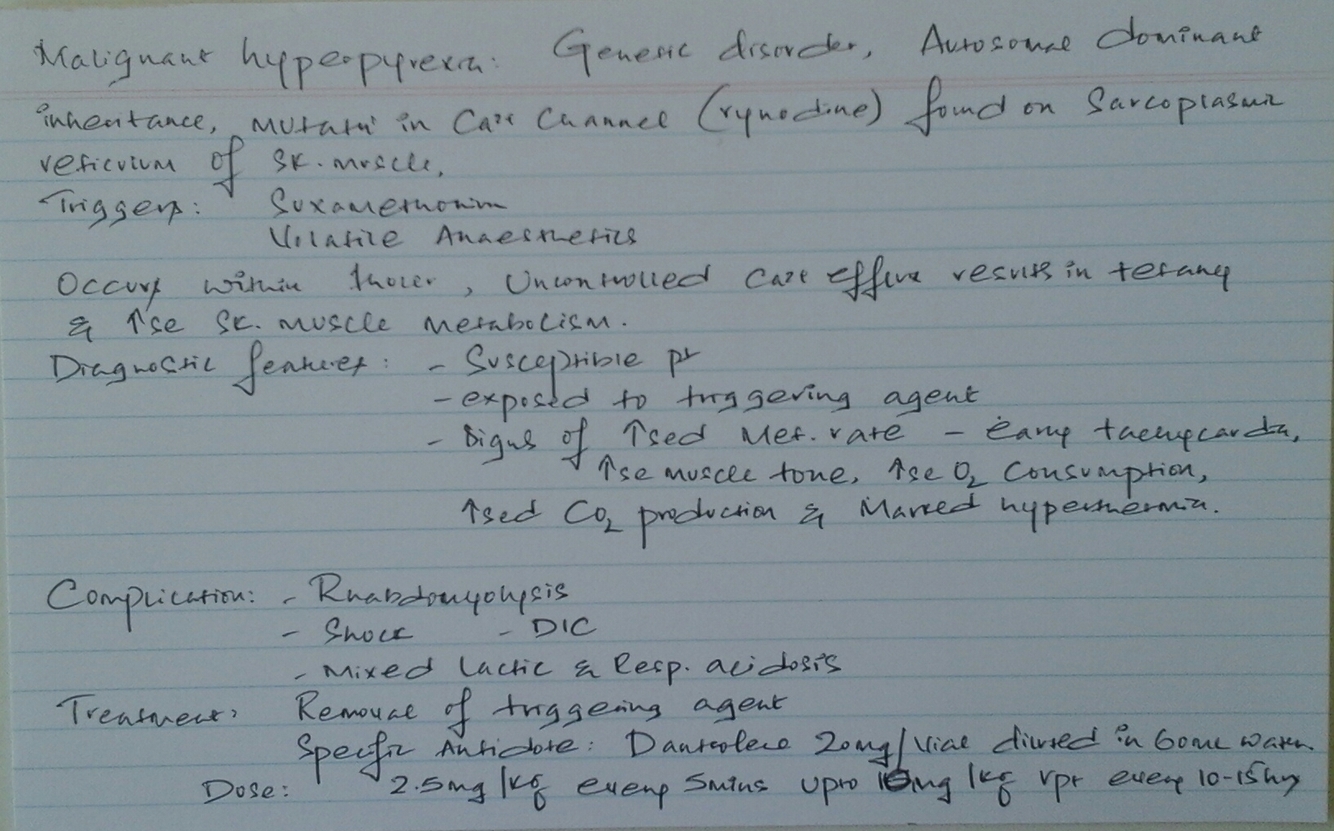 Malignant hyperpyrexia: Genetic disorder, Autosomal dominant
inheritance, mutatn in Ca2+ Channel (rynodine) found on Sarcoplasmic
reticulum of Sk. muscle,
Triggers: Suxamethonium
Volatile Anaesthetics
Occurs within 1hour, Uncontrolled Ca2+ efflux results in tetany
& ↑se Sk. muscle metabolism.
Diagnostic features: - Susceptible pt
- exposed to triggering agent
- Signs of ↑sed Met. rate - early tachycardia,
↑se muscle tone, ↑se O2 Consumption,
↑sed CO2 production & Marked hyperthermia.
Complication: - Rhabdomyolysis
- Shock - DIC
- Mixed lactic & Resp. acidosis
Treatment: Removal of triggering agent
Specific Antidote: Dantrolene 20mg/vial diluted in 60ml water.
Dose: 2.5mg/kg every 5mins upto 10mg/kg rpt every 10-15hrs